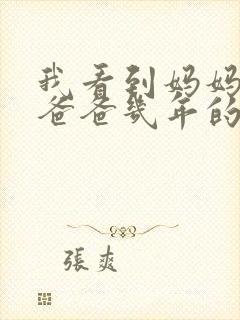 我看到妈妈
爸爸幾年的
張爽